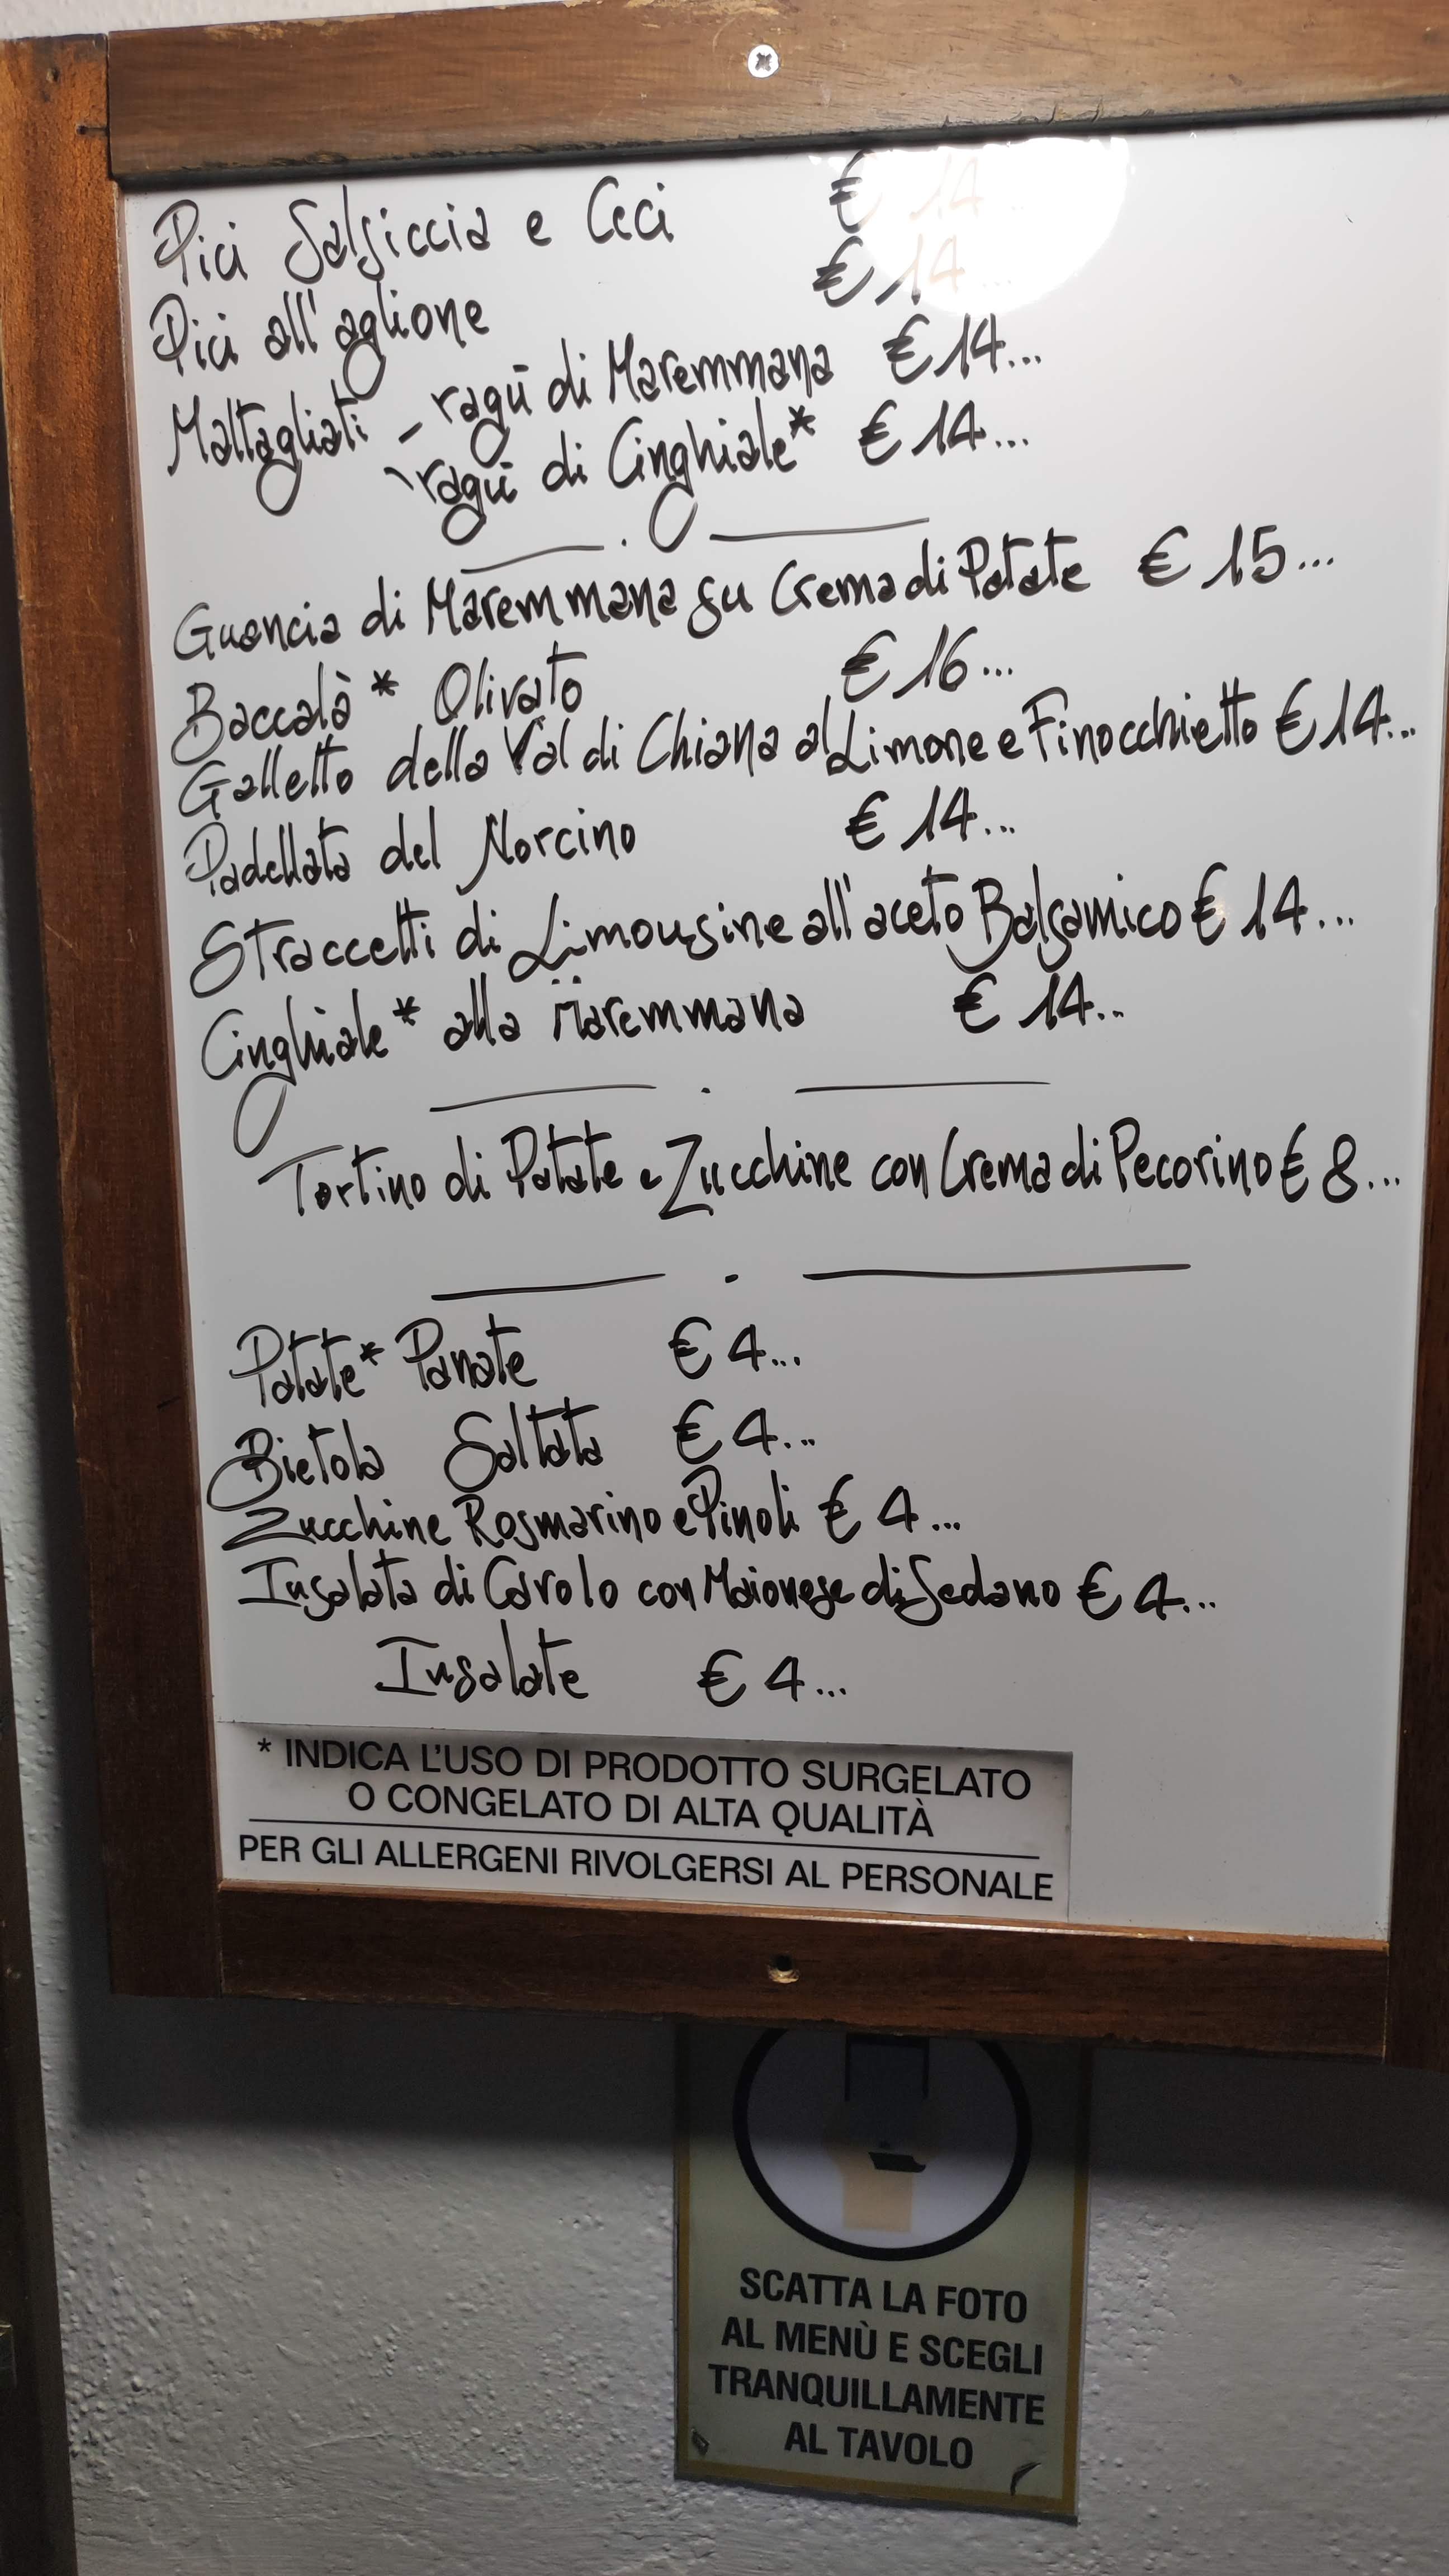 Pici Salsiccia e Ceci € 14...
Pici all'aglione € 14...
Maltagliati - ragù di Maremmana € 14...
ragù di Cinghiale* € 14...
Guancia di Maremmana su Crema di Patate € 15...
Baccalà* Olivato € 16...
Galletto della Val di Chiana al Limone e Finocchietto € 14...
Padellata del Norcino € 14...
Straccetti di Limousine all'aceto Balsamico € 14...
Cinghiale* alla Maremmana € 14...
Tortino di Patate e Zucchine con Crema di Pecorino € 8...
Patate* Panate € 4...
Bietola Saltata € 4...
Zucchine Rosmarino e Pinoli € 4...
Insalata di Cavolo con Maionese di Sedano € 4...
Insalate € 4...
* INDICA L'USO DI PRODOTTO SURGELATO
O CONGELATO DI ALTA QUALITÀ
PER GLI ALLERGENI RIVOLGERSI AL PERSONALE
SCATTA LA FOTO
AL MENÙ E SCEGLI
TRANQUILLAMENTE
AL TAVOLO